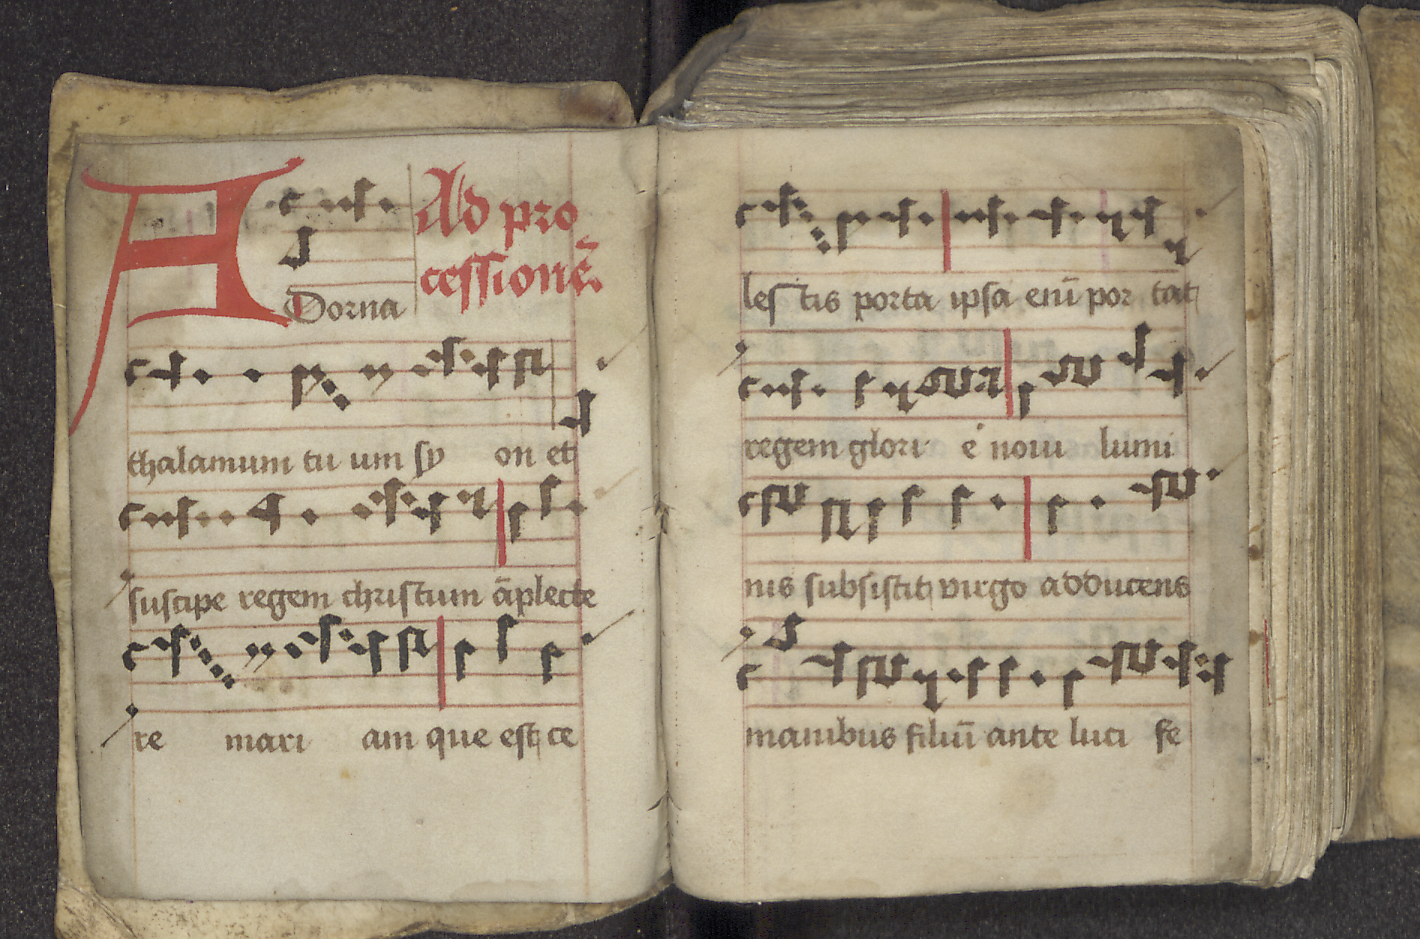 Ad pro
cessionē
Adorna
thalamum tu um sy on et
suscipe regem christum āplecte
re mari am que est ce
les tis porta ipsa enī por tat
regem glori e noui lumi
nis subsistit virgo adducens
manibus filiū ante luci fe